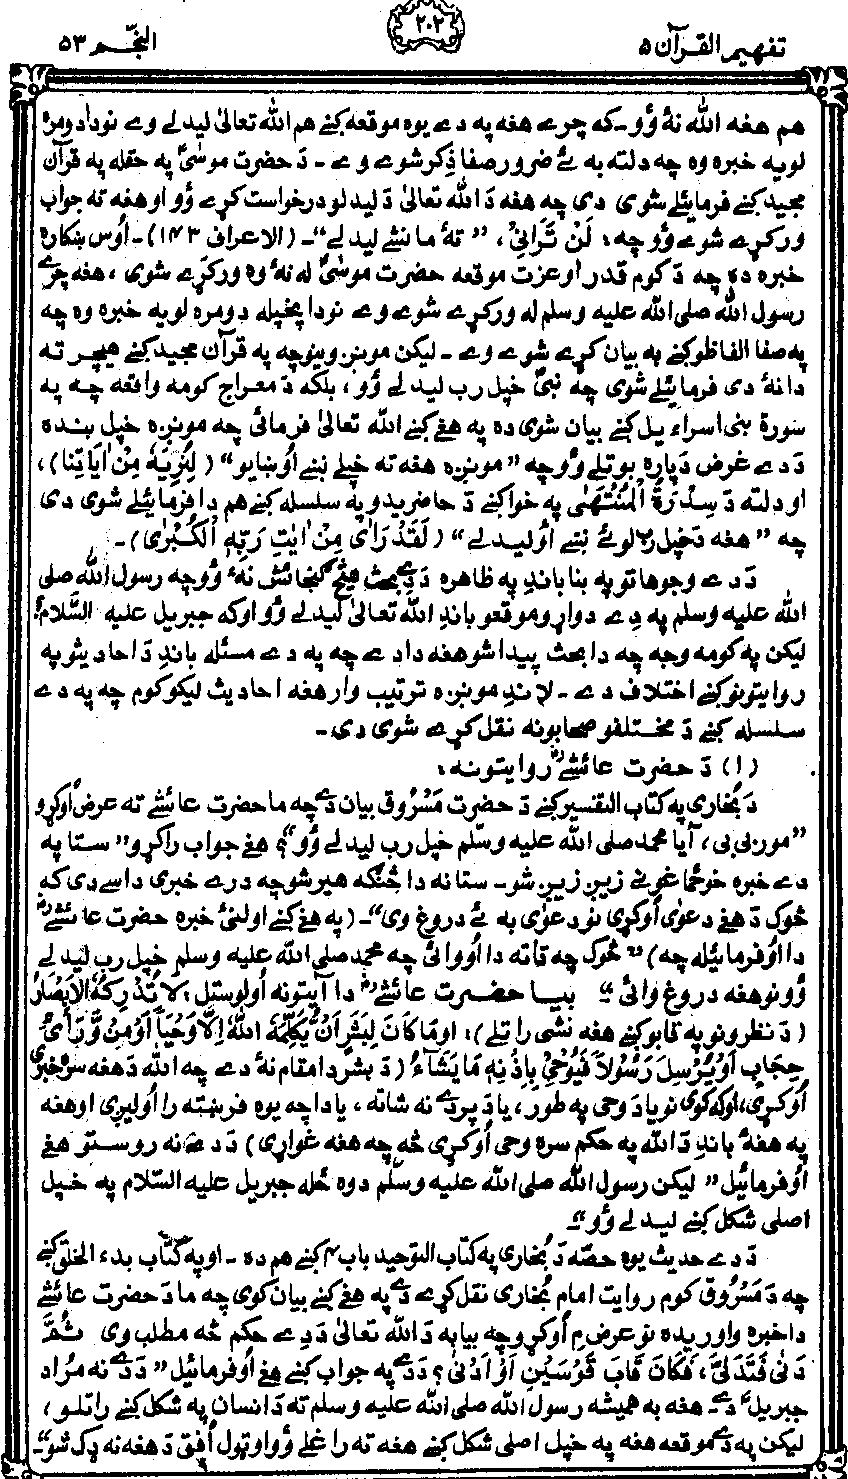 تفهيم القرآن ۵
۲۰۲
النّجم ۵۳
هم هغه الله نهٔ وُو۔ که چرے هغه په دے يوه موقعه کښے هم الله تعالیٰ ليدلے وے نو دا دومرهٔ
لويه خبره وه چه دلته به ئے ضرور صفا ذِکر شوے وے ۔ دَ حضرت موسیٰؑ په حقله په قرآن
مجيد کښے فرمائيلے شوی دی چه هغه دَ الله تعالیٰ دَ ليدلو درخواست کړے وُو او هغه ته جواب
ورکړے شوے وُو چه: لَنْ تَرَانِیْ، ” تهٔ ما نشے ليدلے“۔ (الاعراف ۱۴۳)۔ اُوس ښکاره
خبره ده چه دَ کوم قدر او عزت موقعه حضرت موسیٰؑ له نهٔ وه ورکړے شوی، هغه چرے
رسول الله صلی الله عليه وسلم له ورکړے شوے وے نو دا پخپله دومره لويه خبره وه چه
په صفا الفاظو کښے به بيان کړے شوے وے ۔ ليکن مونږ وينو چه په قرآن مجيد کښے هيچرته
دا نهٔ دی فرمائيلے شوی چه نبیؐ خپل رب ليدلے وُو، بلکه دَ معراج کومه واقعه چه په
سورة بنی اسراءيل کښے بيان شوی ده په هغے کښے الله تعالیٰ فرمائی چه مونږه خپل بنده
دَ دے غرض دَپاره بوتلے وُو چه ” مونږه هغه ته خپلے نښے اُوښايو“ (لِنُرِيَهٗ مِنْ اٰيَاتِنَا)،
او دلته دَ سِدْرَةُ الْمُنْتَهٰی په خوا کښے دَ حاضريدو په سلسله کښے هم دا فرمائيلے شوی دی
چه ” هغه دَ خپل رب لوئے نښے اُوليدلے“ (لَقَدْ رَاٰی مِنْ اٰيٰتِ رَبِّهِ الْکُبْرٰی)۔
دَ دے وجوهاتو په بنا باندِ په ظاهره دَ دے بحث هيڅ ګنجائش نهٔ وُو چه رسول الله صلی
الله عليه وسلم په دے دواړو موقعو باندِ الله تعالیٰ ليدلے وُو او که جبريل عليه السَّلام؟
ليکن په کومه وجه چه دا بحث پيدا شو هغه دا دے چه په دے مسئله باندِ دَ احاديثو په
روايتونو کښے اختلاف دے ۔ لاندِ مونږه ترتيب وار هغه احاديث ليکو کوم چه په دے
سلسله کښے دَ مختلفو صحابونه نقل کړے شوی دی ۔
(۱) دَ حضرت عائشےؓ روايتونه:
دَ بخاری په کتاب التفسير کښے دَ حضرت مَسْرُوق بيان دے چه ما حضرت عائشے ته عرض اُوکړو
”مور بی بی، آيا محمد صلی الله عليه وسلّم خپل رب ليدلے وُو“؟ هغے جواب راکړو” ستا په
دے خبره خو ځما غونے زيږ زيږ شو۔ ستا نه دا څنګه هير شو چه درے خبری داسے دی که
څوک دَ هغے دعویٰ اُوکړی نو دعویٰ به ئے دروغ وی“۔ (په هغے کښے اولنیٔ خبره حضرت عائشےؓ
دا اُوفرمائيله چه) ” څوک چه تا ته دا اُووائی چه محمد صلی الله عليه وسلم خپل رب ليدلے
وُو نو هغه دروغ وائی“۔ بيا حضرت عائشےؓ دا آيتونه اُولوستل: لَا تُدْرِکُهُ الْاَبْصَارُ
(دَ نظرونو په قابو کښے هغه نشی راتلے): او مَا کَانَ لِبَشَرٍ اَنْ يُّکَلِّمَهُ اللهُ اِلَّا وَحْيًا اَوْ مِنْ وَّرَآئِ
حِجَابٍ اَوْ يُرْسِلَ رَسُوْلًا فَيُوْحِیَ بِاِذْنِهٖ مَا يَشَآءُ (دَ بشر دا مقام نهٔ دے چه الله دَ هغه سره خبری
اُوکړی، او که کوی نو يا دَ وحی په طور، يا دَ پردے نه شاته، يا دا چه يوه فرښته را اُوليږی او هغه
په هغهٔ باندِ دَ الله په حکم سره وحی اُوکړی څه چه هغه غواړی) دَ دے نه روستو هغے
اُوفرمائيل” ليکن رسول الله صلی الله عليه وسلّم دوه ځله جبريل عليه السّلام په خپل
اصلی شکل کښے ليدلے وُو“۔
دَ دے حديث يوه حصّه دَ بخاری په کتاب التوحيد باب ۴ کښے هم ده ۔ او په کتاب بدء الخلق کښے
چه دَ مَسْرُوق کوم روايت امام بخاری نقل کړے دے په هغے کښے بيان کوی چه ما دَ حضرت عائشے
دا خبره واوريده نو عرض مِ اُوکړو چه بيا به دَ الله تعالیٰ دَ دے حکم څه مطلب وی ثُمَّ
دَنٰی فَتَدَلّٰی، فَکَانَ قَابَ قَوْسَيْنِ اَوْ اَدْنٰی؟ دَ دے په جواب کښے هغے اُوفرمائيل” دَ دے نه مُراد
جبريلؑ دے۔ هغه به هميشه رسول الله صلی الله عليه وسلم ته دَ انسان په شکل کښے راتلو،
ليکن په دے موقعه هغه په خپل اصلی شکل کښے هغه ته راغلے وُو او ټول اُفق دَ هغه نه ډک شو“۔